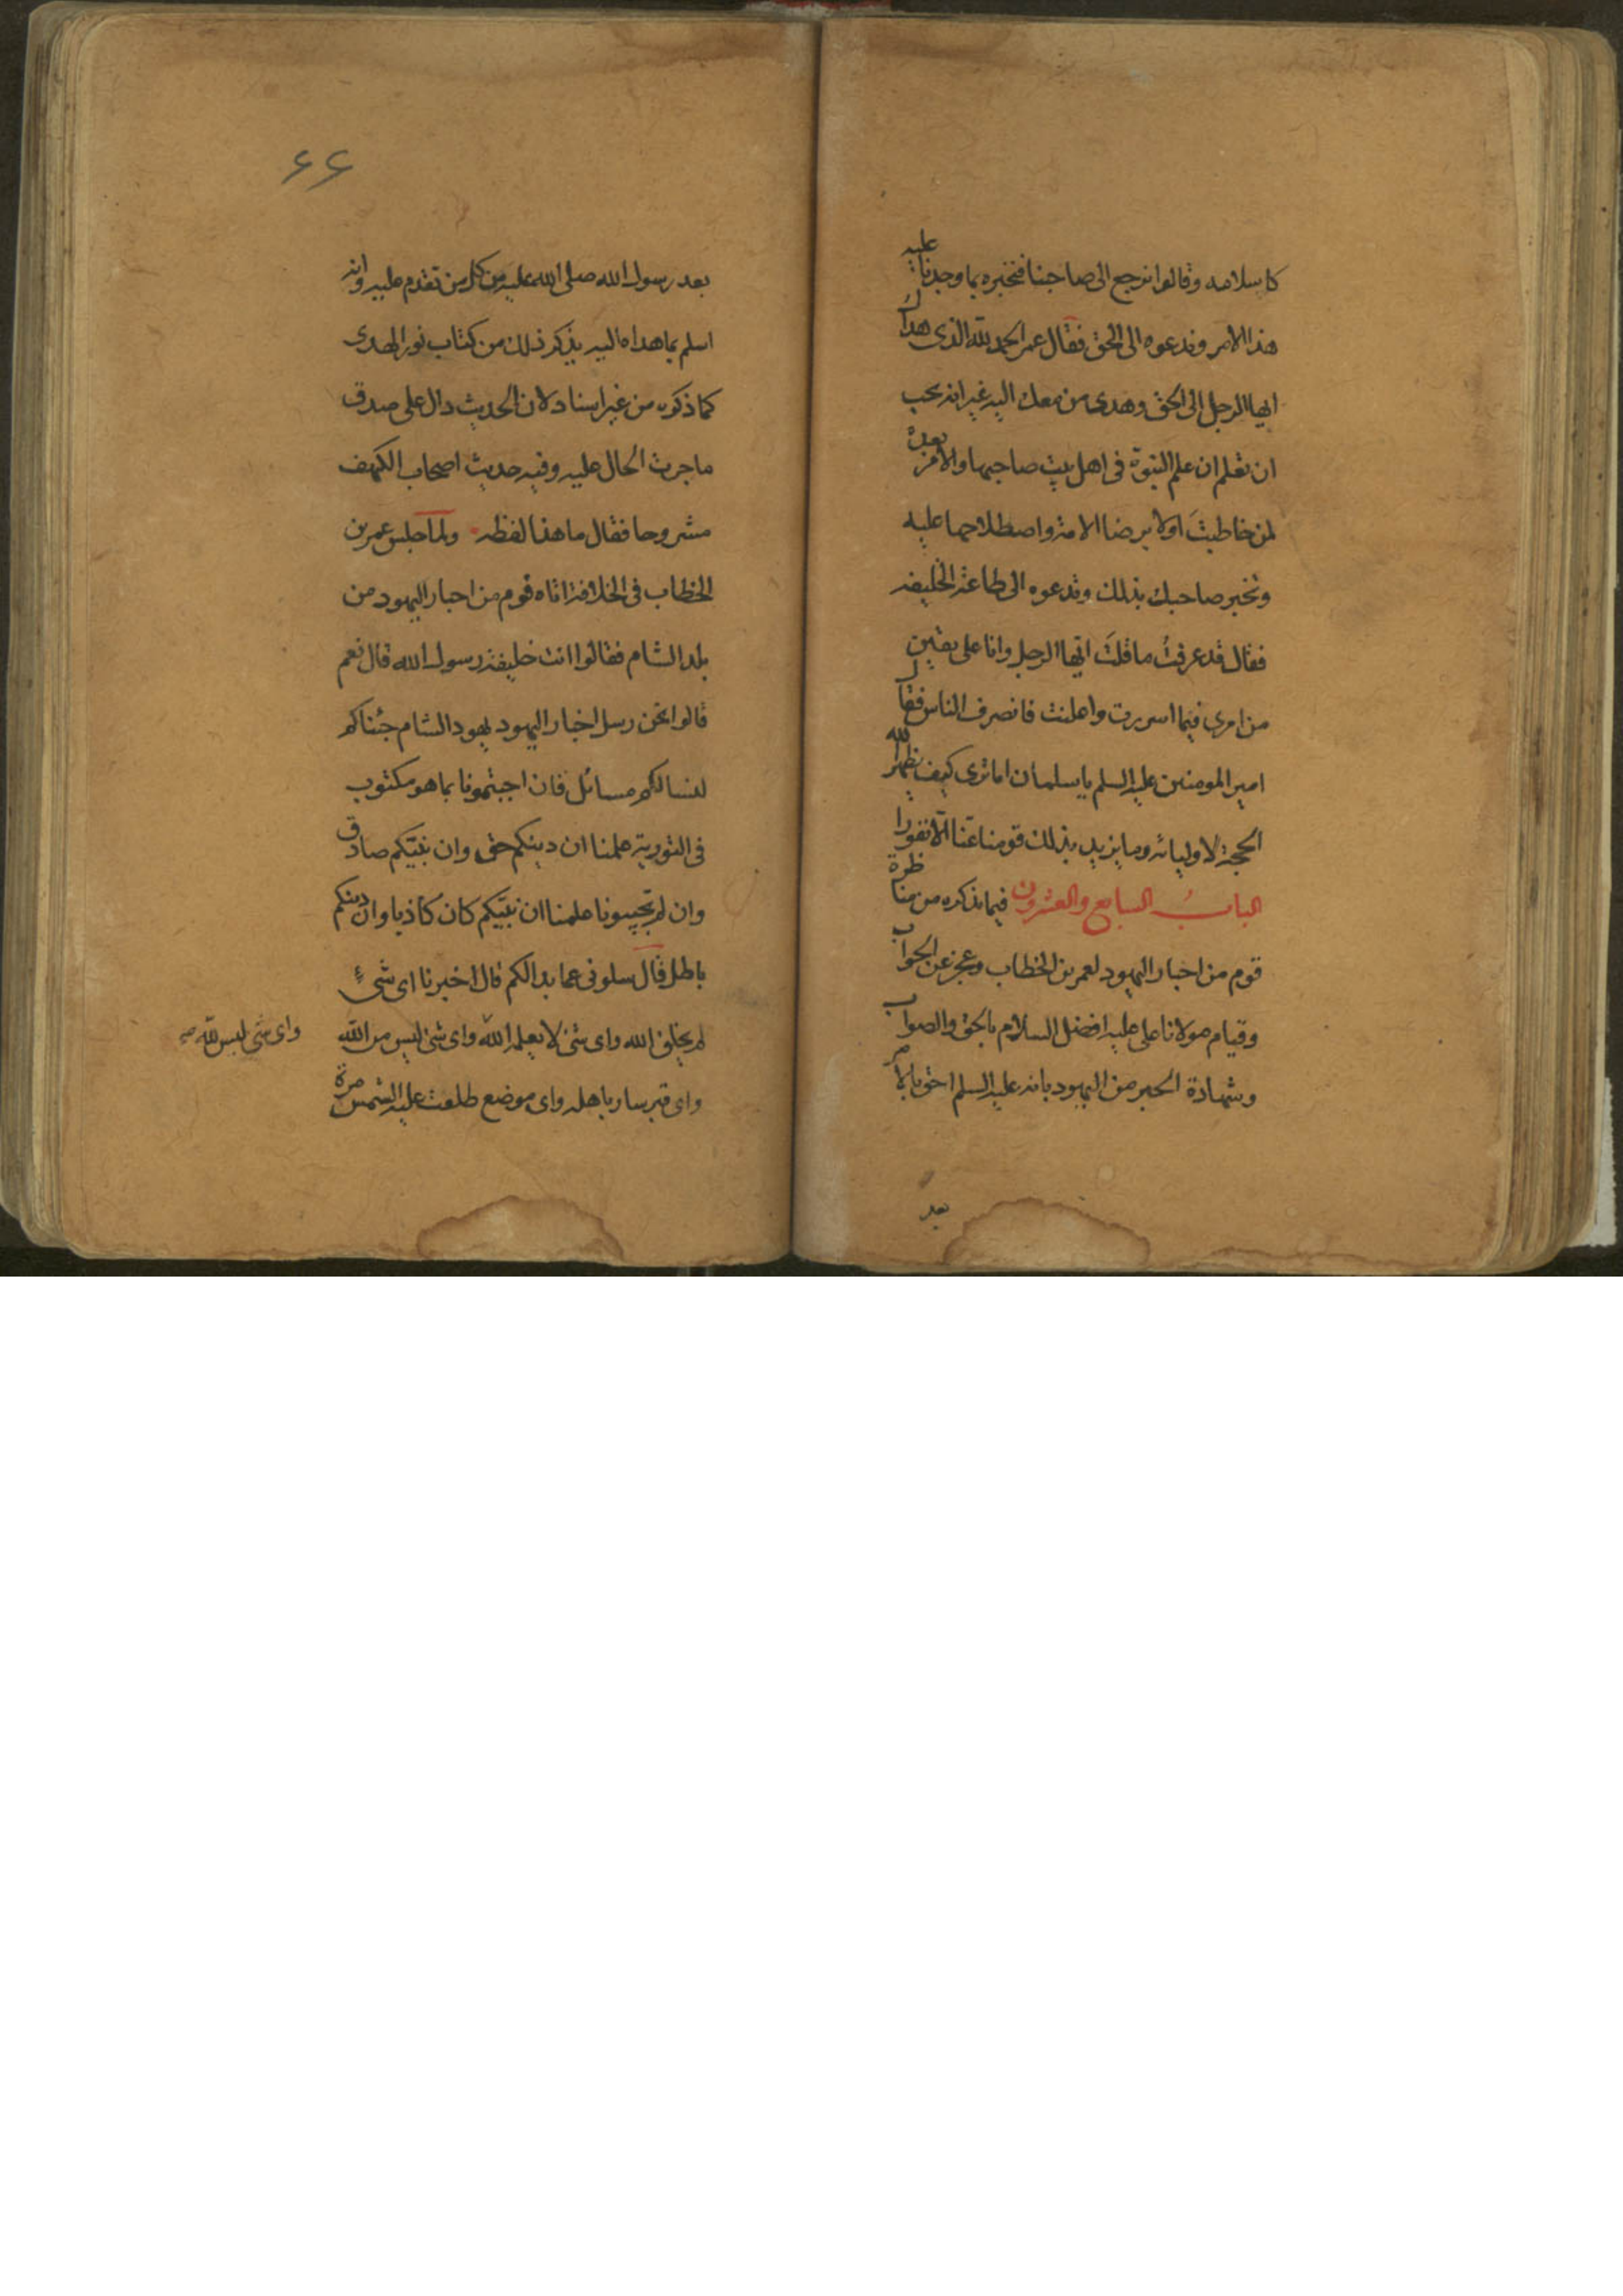 كاسلامه وقالوا نرجع الى صاحبنا فنخبره بما وجدنا عليه
هذا الامر وندعوه الى الحق فقال عمر الحمد لله الذى هداك
ايها الرجل الى الحق وهدى من معك اليه غير انه يجب
ان تعلم ان علم النبوة فى اهل بيت صاحبها والامر بعده
لمن خاطبت اولا برضا الامة واصطلاحها عليه
وتخبر صاحبك بذلك وتدعوه الى طاعة الخليفة
فقال قد عرفت ما قلت ايها الرجل وانا على يقين
من امرى فيما اسررت واعلنت فانصرف الناس فقال
امير المومنين عليه السلم يا سلمان اما ترى كيف يظهر الله
الحجة لاوليائه وما يزيد بذلك قومنا عنا الا نفورا
الباب السابع والعشرون فيما نذكره من مناظرة
قوم من احبار اليهود لعمر بن الخطاب وعجز عن الجواب
وقيام مولانا على عليه افضل السلام بالحق والصواب
وشهادة الحبر من اليهود بانه عليه السلم احق بالامر
بعد
٦٦
بعد رسول الله صلى الله عليه من كل من تقدم عليه وانه
اسلم بما هداه اليه يذكر ذلك من كتاب نور الهدى
كما ذكره من غير اسناد لان الحديث دال على صدق
ما جرت الحال عليه وفيه حديث اصحاب الكهف
مشروحا فقال ما هذا لفظه ولما جلس عمر بن
الخطاب فى الخلافة اتاه قوم من احبار اليهود من
بلد الشام فقالوا انت خليفة رسول الله قال نعم
قالوا نحن رسل احبار اليهود يهود الشام جئناكم
لنسالكم مسائل فان اجبتمونا بما هو مكتوب
فى التورية علمنا ان دينكم حق وان نبيكم صادق
وان لم تجيبونا علمنا ان نبيكم كان كاذبا وان دينكم
باطل قال سلونى عما بدا لكم قال اخبرنا اى شىء
لم يخلق الله واى شئ لا يعلمه الله واى شئ ليس من الله
واى شئ ليس لله صح
واى قبر سار باهله واى موضع طلعت عليه الشمس مرة